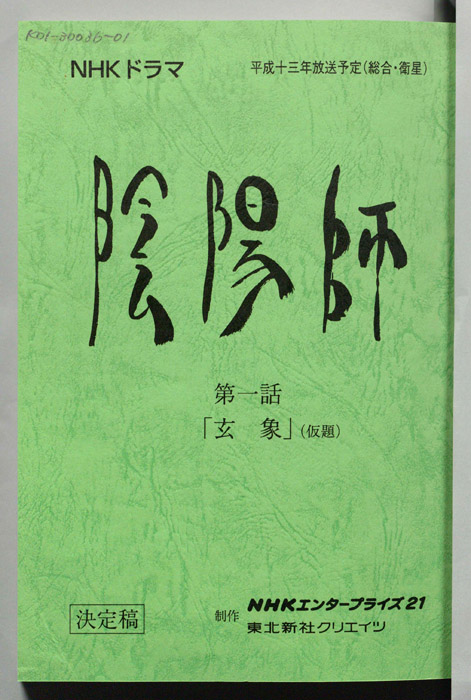 K01-30036-01
NHKドラマ
平成十三年放送予定(総合・衛星)
陰陽師
第一話
「玄 象」(仮題)
決定稿
制作 NHKエンタープライズ21
東北新社クリエイツ